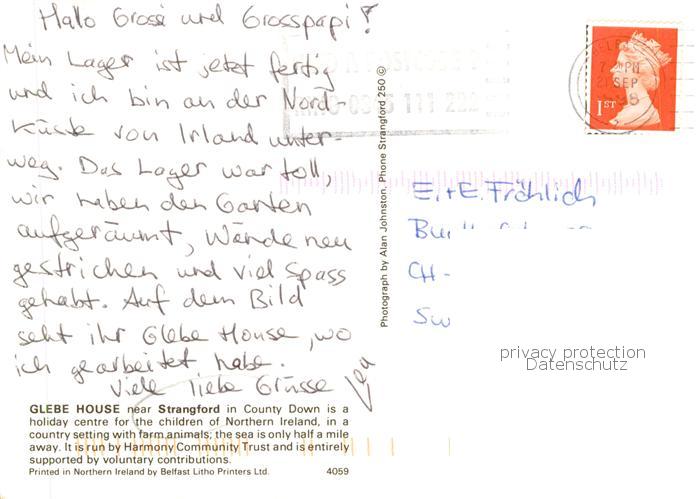 Hallo Grosi und Grosspapi!
Mein Lager ist jetzt fertig
und ich bin an der Nord-
küste von Irland unter-
weg. Das Lager war toll,
wir haben den Garten
aufgeräumt, Wände neu
gestrichen und viel Spass
gehabt. Auf dem Bild
seht ihr Glebe House, wo
ich gearbeitet habe.
Viele liebe Grüsse Lea
GLEBE HOUSE near Strangford in County Down is a
holiday centre for the children of Northern Ireland, in a
country setting with farm animals; the sea is only half a mile
away. It is run by Harmony Community Trust and is entirely
supported by voluntary contributions.
Printed in Northern Ireland by Belfast Litho Printers Ltd. 4059
Photograph by Alan Johnston, Phone Strangford 250 ©
1ST
PM
21 SEP
E.+E. Fröhlich
CH-
Sw
privacy protection
Datenschutz